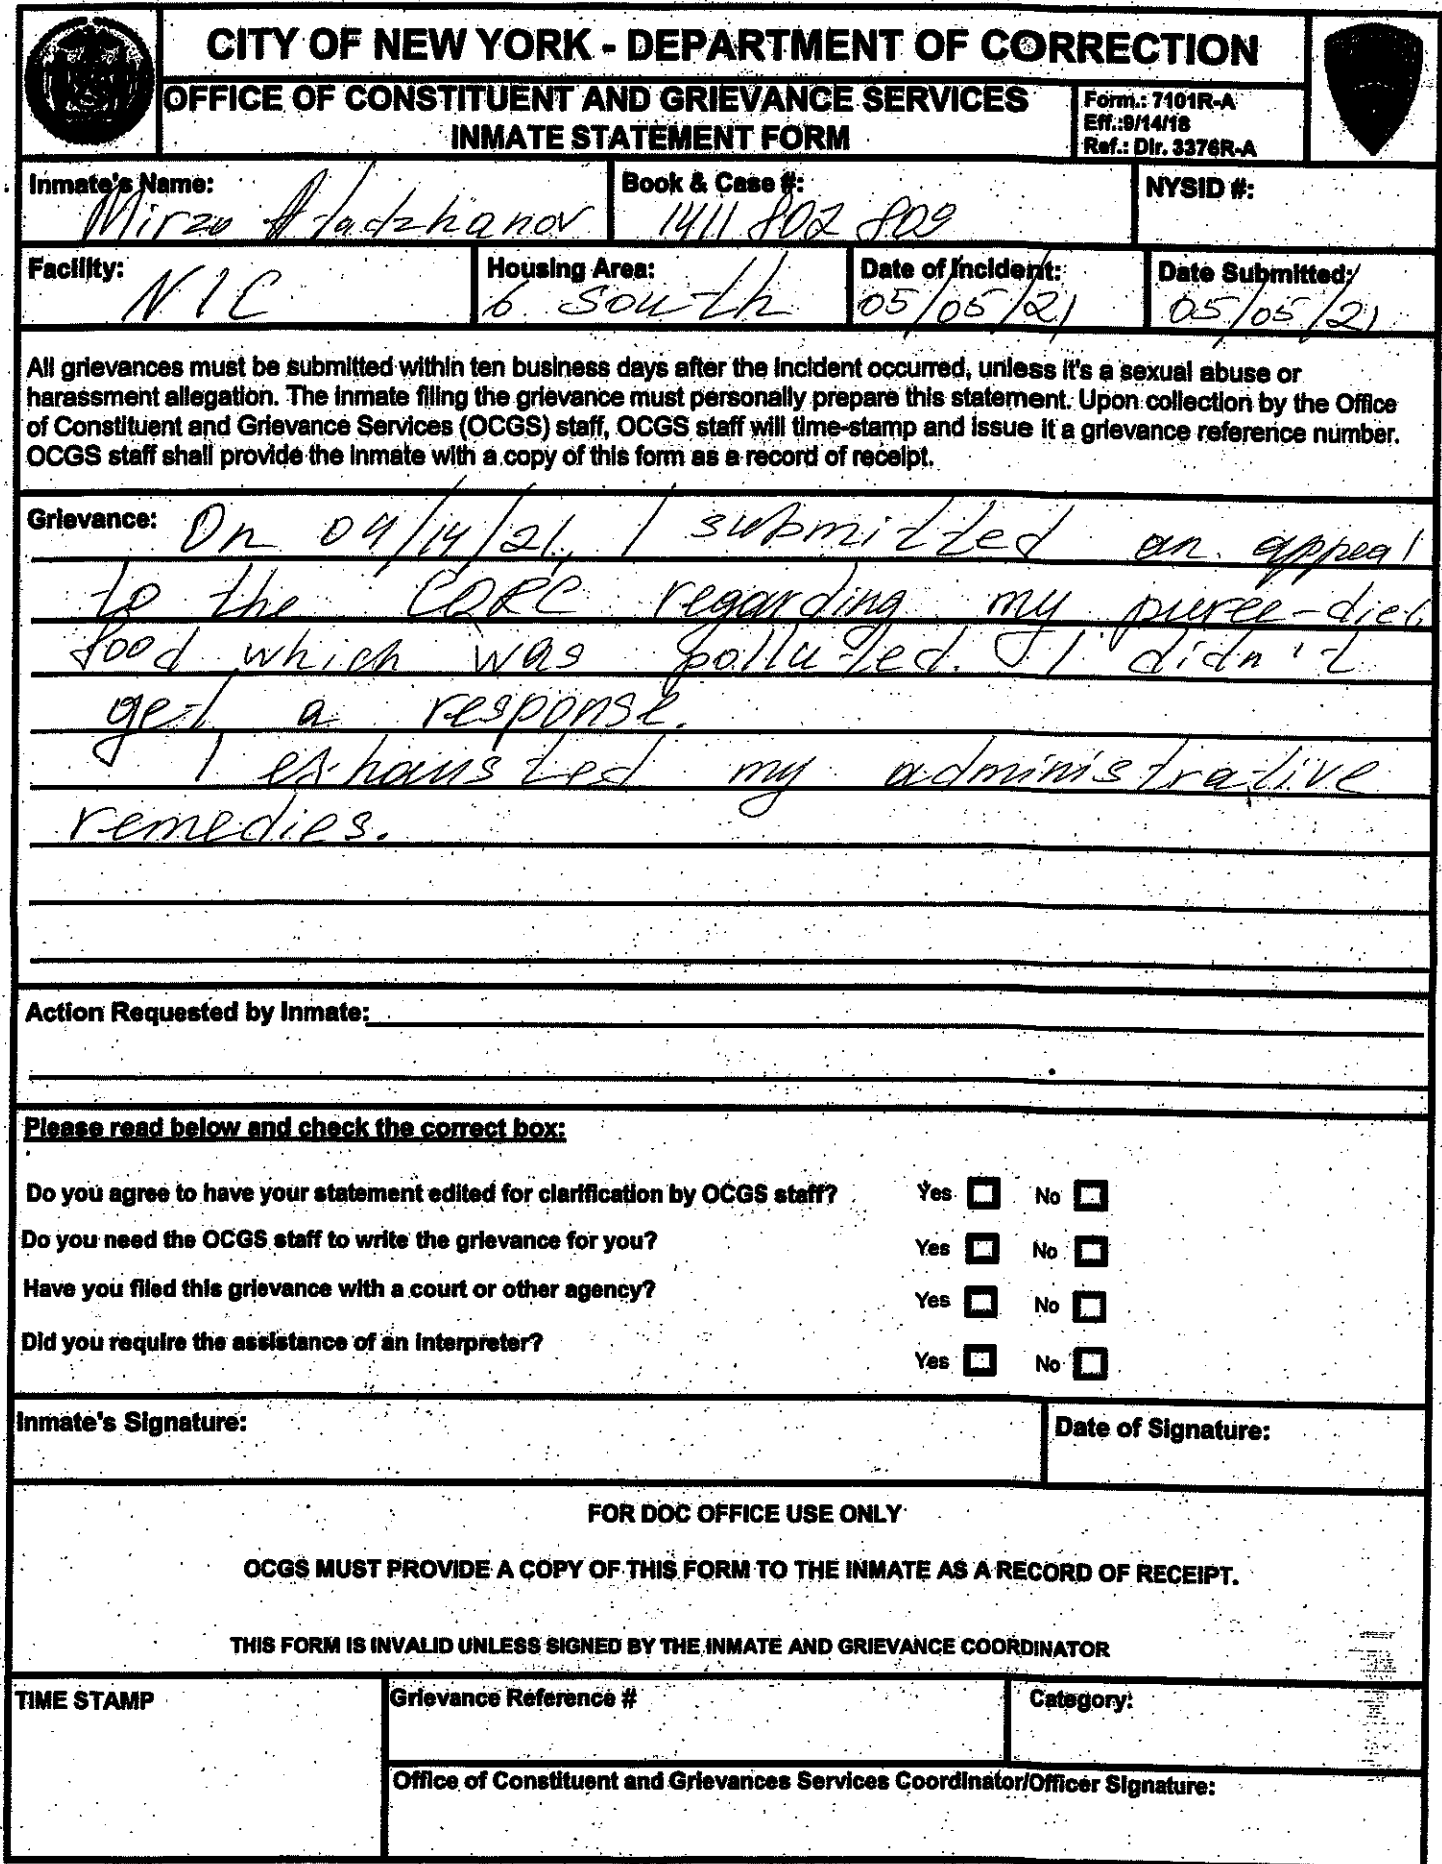 CITY OF NEW YORK - DEPARTMENT OF CORRECTION
OFFICE OF CONSTITUENT AND GRIEVANCE SERVICES
INMATE STATEMENT FORM
Form.: 7101R-A
Eff.:9/14/18
Ref.: Dir. 3376R-A
Inmate's Name: Mirzo Atadzhanov
Book & Case #: 1411 802 809
NYSID #:
Facility: NIC
Housing Area: 6 South
Date of Incident: 05/05/21
Date Submitted: 05/05/21
All grievances must be submitted within ten business days after the incident occurred, unless it's a sexual abuse or
harassment allegation. The inmate filing the grievance must personally prepare this statement. Upon collection by the Office
of Constituent and Grievance Services (OCGS) staff, OCGS staff will time-stamp and issue it a grievance reference number.
OCGS staff shall provide the inmate with a copy of this form as a record of receipt.
Grievance: On 04/14/21, I submitted an appeal
to the CORC regarding my puree-diet
food which was polluted. I didn't
get a response.
I exhausted my administrative
remedies.
Action Requested by Inmate:
Please read below and check the correct box:
Do you agree to have your statement edited for clarification by OCGS staff? Yes No
Do you need the OCGS staff to write the grievance for you? Yes No
Have you filed this grievance with a court or other agency? Yes No
Did you require the assistance of an interpreter? Yes No
Inmate's Signature:
Date of Signature:
FOR DOC OFFICE USE ONLY
OCGS MUST PROVIDE A COPY OF THIS FORM TO THE INMATE AS A RECORD OF RECEIPT.
THIS FORM IS INVALID UNLESS SIGNED BY THE INMATE AND GRIEVANCE COORDINATOR
TIME STAMP
Grievance Reference #
Category:
Office of Constituent and Grievances Services Coordinator/Officer Signature: